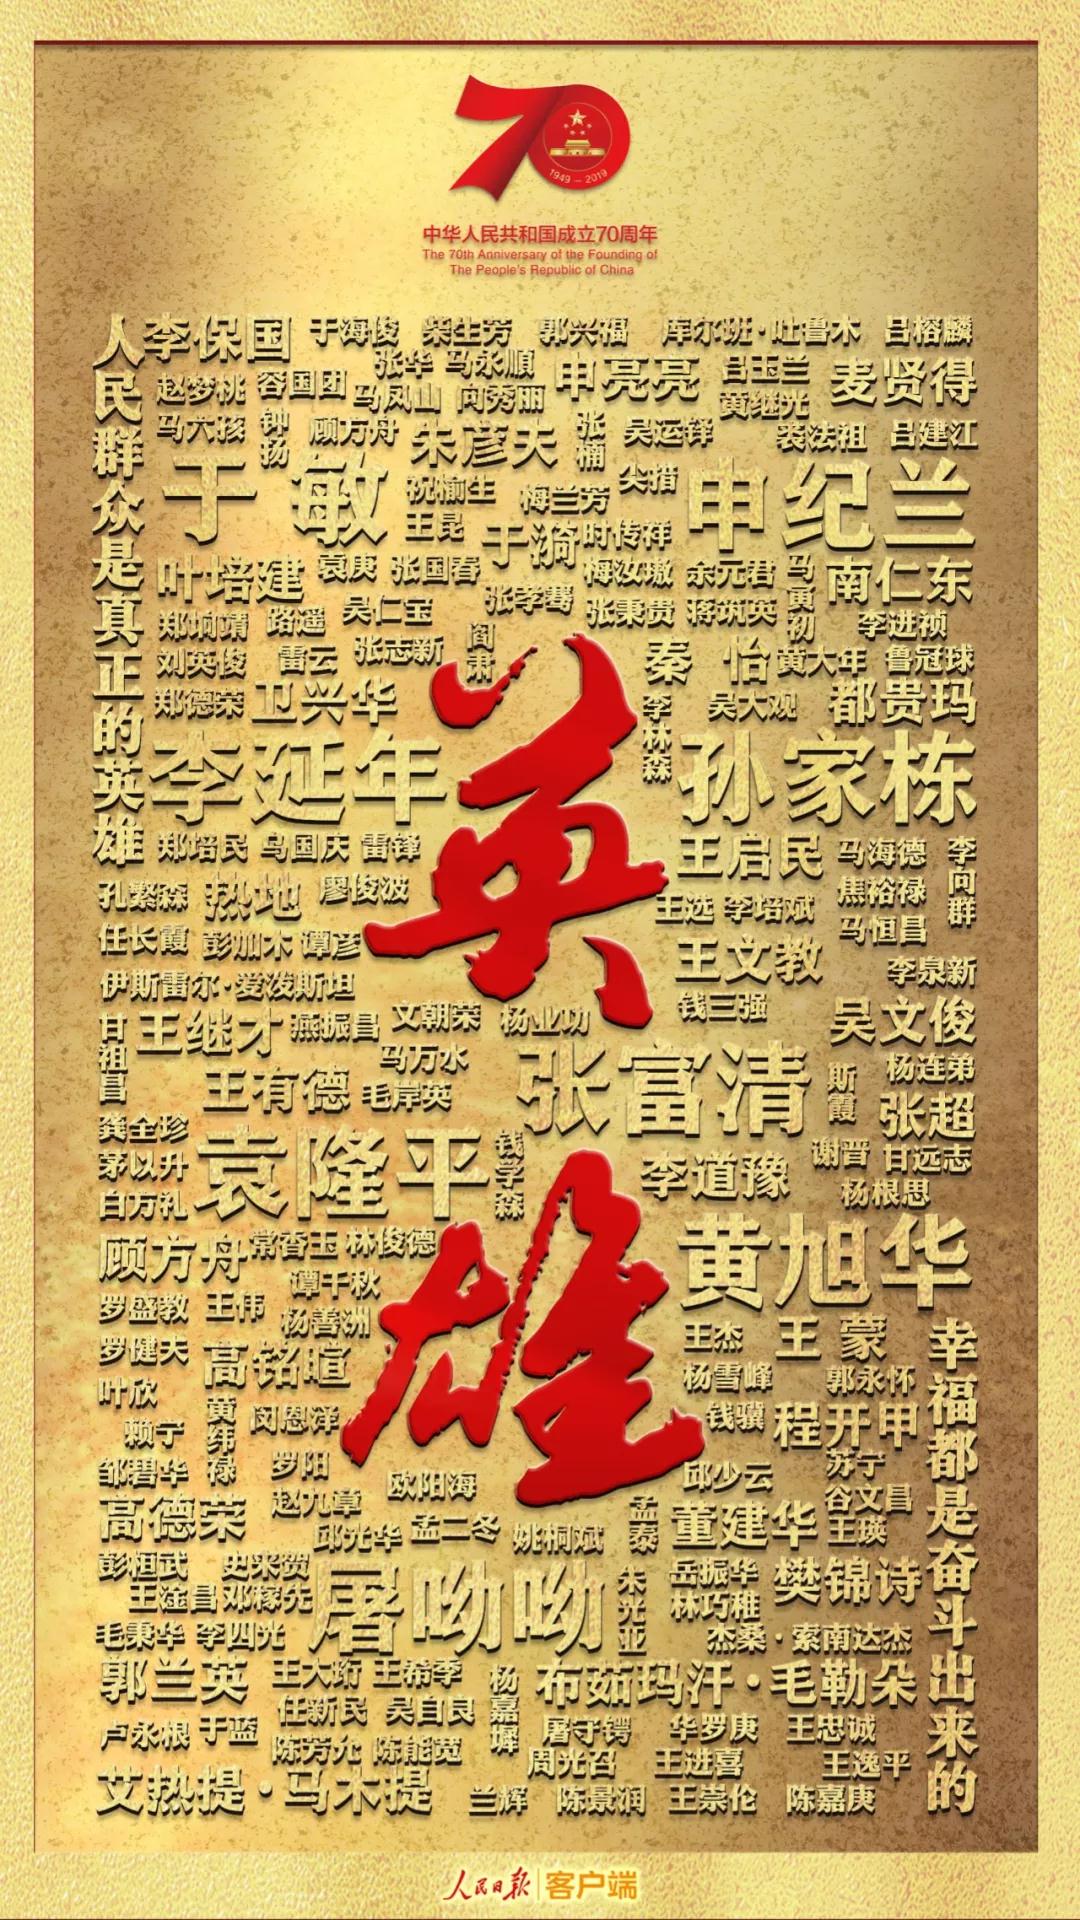 70
1949 – 2019
中华人民共和国成立70周年
The 70th Anniversary of the Founding of
The People's Republic of China
人民群众是真正的英雄
李保国 于海俊 柴生芳 郭兴福 库尔班·吐鲁木 吕榕麟
张华 马永顺
赵梦桃 容国团 申亮亮 吕玉兰 麦贤得
马凤山 向秀丽 黄继光
马六孩 钟扬 顾方舟 朱彦夫 张楠 吴运铎 裴法祖 吕建江
于敏 祝榆生 梅兰芳 尖措 申纪兰
王昆 于漪 时传祥
叶培建 袁庚 张国春 梅汝璈 余元君 马寅初 南仁东
郑垧靖 路遥 吴仁宝 张孝骞 张秉贵 蒋筑英 李进祯
刘英俊 雷云 张志新 阎肃 秦怡 黄大年 鲁冠球
郑德荣 卫兴华 李林森 吴大观 都贵玛
李延年 孙家栋
郑培民 乌国庆 雷锋 王启民 马海德 李向群
孔繁森 热地 廖俊波 王选 李培斌 焦裕禄
任长霞 彭加木 谭彦 王文教 马恒昌
伊斯雷尔·爱泼斯坦 李泉新
甘祖昌 王继才 燕振昌 文朝荣 杨业功 钱三强 吴文俊
马万水 张富清 斯霞 杨连弟
王有德 毛岸英 张超
龚全珍
茅以升 袁隆平 钱学森 李道豫 谢晋 甘远志
白方礼 杨根思
顾方舟 常香玉 林俊德 黄旭华
谭千秋
罗盛教 王伟 杨善洲
罗健夫 高铭暄 王杰 王蒙
叶欣 黄纬禄 闵恩泽 杨雪峰 郭永怀
赖宁 钱骥 程开甲
邹碧华 罗阳 欧阳海 邱少云 苏宁
高德荣 赵九章 孟泰 董建华 谷文昌
邱光华 孟二冬 姚桐斌 王瑛
彭桓武 史来贺 屠呦呦 朱光亚 岳振华 樊锦诗
王淦昌 邓稼先 林巧稚
毛秉华 李四光 杰桑·索南达杰
郭兰英 王大珩 王希季 杨嘉墀 布茹玛汗·毛勒朵
任新民 吴自良
卢永根 于蓝 屠守锷 华罗庚 王忠诚
陈芳允 陈能宽 周光召 王进喜 王逸平
艾热提·马木提 兰辉 陈景润 王崇伦 陈嘉庚
幸福都是奋斗出来的
英雄
人民日报 客户端